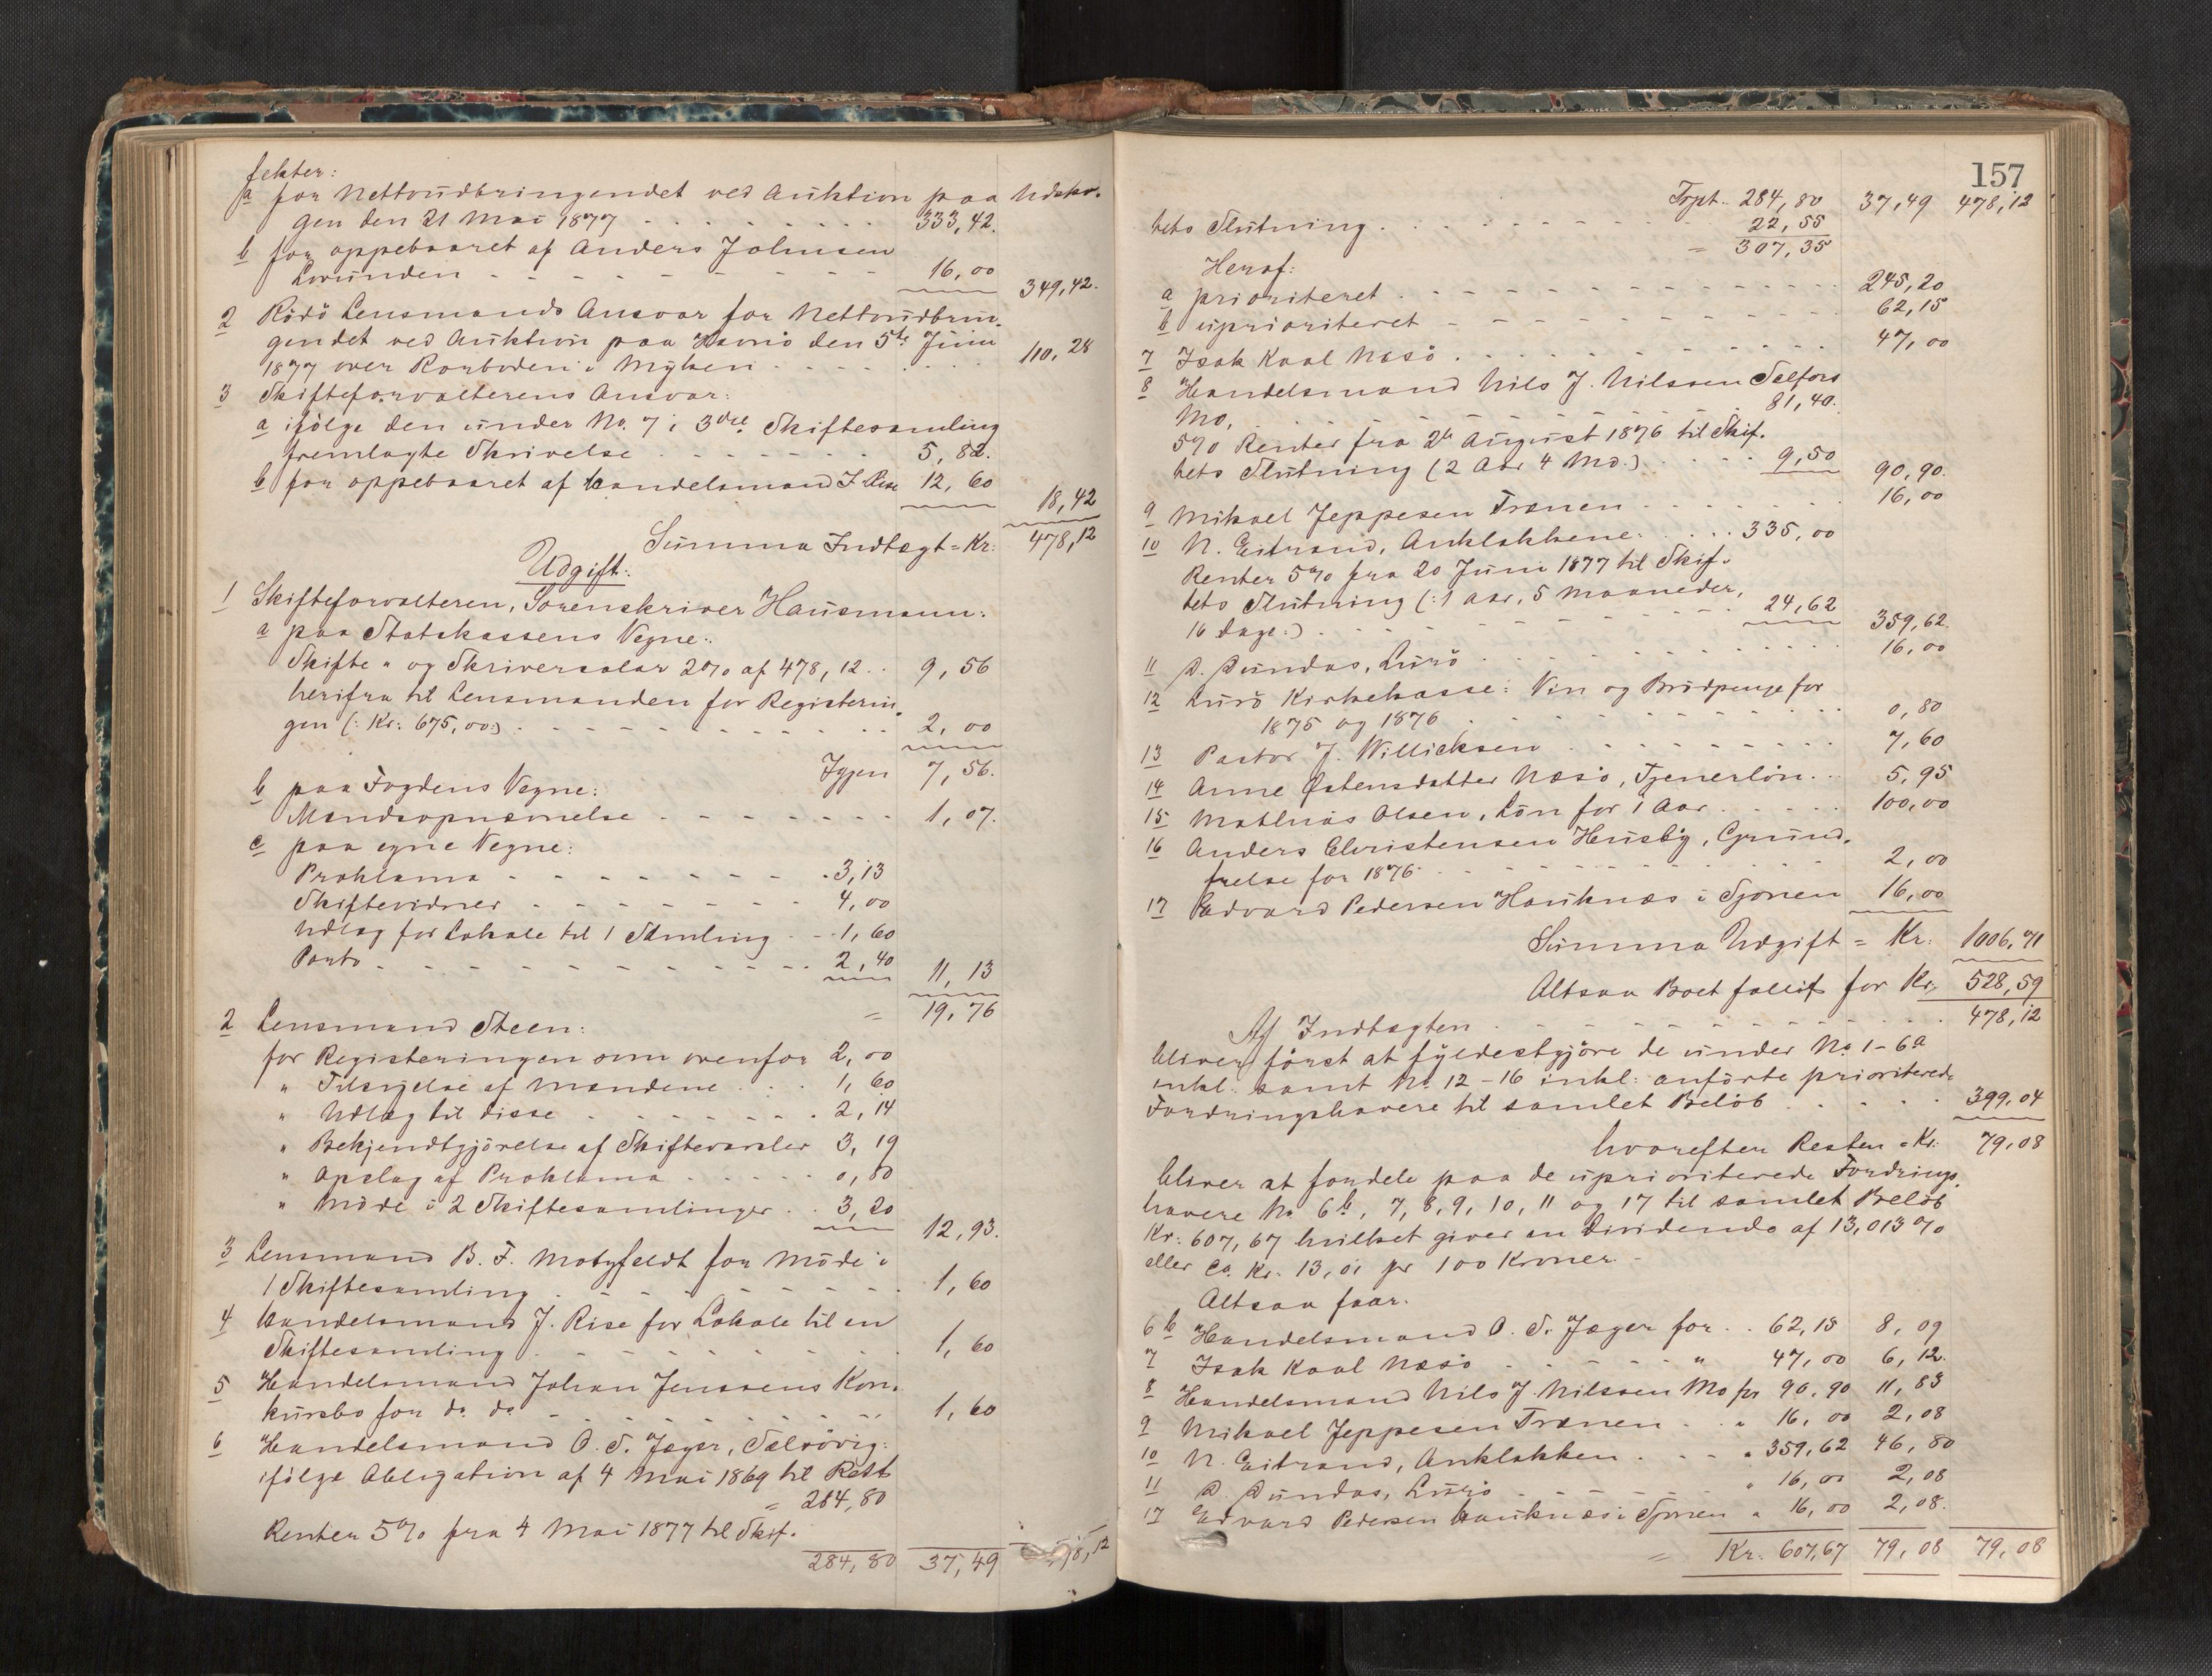 fekter:
a for Nettoudbringendet ved Auktion paa Udskor-
gen den 21 Mai 1877 . . . . . . . 333,42.
b for oppebaaret af Anders Johnsen
Lovunden - - - - - - - - 16,00
349,42.
2 Rödö Lensmands Ansvar for Nettoudbrin-
gendet ved Auktion paa Havnö den 5te Juni
1877 over Rorboden i Myken . . . . . . . 110,28
3 Skifteforvalterens Ansvar:
a ifölge den under No. 7 i 3die Skiftesamling
fremlagte Skrivelse . . . . . . 5,82.
b for oppebaaret af Handelsmand J. Rise 12,60
18,42
Summa Indtægt = Kr: 478,12
Udgift:
1 Skifteforvalteren, Sorenskriver Hausmann:
a paa Statskassens Vegne:
Skifte- og Skriversalær 2% af 478,12 . . 9,56
herifra til Lensmanden for Registerin-
gen (: Kr: 675,00:) . . . . . . . . . 2,00
Igjen 7,56.
b paa Fogdens Vegne:
Mændsopnævnelse . . . . . . . 1,07.
c paa egne Vegne:
Proklama - - - - - - - 3,13
Skiftevidner - - - - - - - 4,00
Udlæg for Lokale til 1 Samling - - 1,60
Porto - - - - - - - - - - 2,40
11,13
= 19,76
2 Lensmand Steen:
for Registeringen som ovenfor 2,00
" Tilsigelse af Mændene . . . 1,60
" Udlæg til disse . . . . . . . 2,14
" Bekjendtgjörelse af Skiftevarsler 3,19
" Opslag af Proklama . . . . . 0,80
" Möde i 2 Skiftesamlinger . . 3,20
12,93.
3 Lensmand B. F. Motzfeldt for Möde i
1 Skiftesamling . . . . . . . . . 1,60
4 Handelsmand J. Rise for Lokale til en
Skiftesamling . . . . . . . . . 1,60
5 Handelsmand Johan Jenssens Kon-
kursbo for do do - - - - - - - - - 1,60
6 Handelsmand O. S. Jæger, Selsövig:
ifölge Obligation af 4 Mai 1869 til Rest
= 284,80
Renter 5% fra 4 Mai 1877 til Skif-
284,80 37,49 478,12
157
Trpt. 284,80 37,49 478,12
tets Slutning . . . . . . . . 22,55
= 307,35
Heraf:
a prioriteret . . . . . . . . . . . . . 245,20
b uprioriteret - - - - - - - - - - - - 62,15
7 Isak Kaal Næsö . . . . . . . . . . . 47,00
8 Handelsmand Nils J. Nilssen Selfors
Mo, - - - - - - - - - - 81,40.
5% Renter fra 2de August 1876 til Skif-
tets Slutning (2 Aar 4 Md:) . . . . 9,50
90,90.
9 Mikael Jeppesen Trænen . . . . . . . 16,00
10 N. Eitrand, Anklakkene. . . . . 335,00
Renter 5% fra 20 Juni 1877 til Skif-
tets Slutning (:1 Aar, 5 Maaneder,
16 Dage:) . . . . . . . . . . . 24,62
359,62.
11 D. Dundas, Lurö . . . . . . . . . . . 16,00
12 Lurö Kirkekasse: Vin og Brödpenge for
1875 og 1876 . . . . . . . . . . 0,80
13 Pastor J. Willicksen . . . . . . . . . 7,60
14 Anne Östensdatter Næsö, Tjenerlön . . 5,95
15 Mathias Olsen, Lön for 1 Aar . . . . . 100,00
16 Anders Christensen Husby, Grund-
frelse for 1876 - - - - - - - - - - 2,00
17 Edvard Pedersen Hauknæs i Sjonen 16,00
Summa Udgift = Kr: 1006,71
Altsaa Boet fallit for Kr: 528,59
Af Indtægten . . . . . . . . . . . . 478,12
bliver först at fyldestgjöre de under No 1-6a
inkl: samt No 12-16 inkl: anförte prioriterede
Fordringshavere til samlet Belöb . . . . . 399,04
hvorefter Resten = Kr: 79,08
bliver at fordele paa de uprioriterede Fordrings-
havere No 6b, 7, 8, 9, 10, 11 og 17 til samlet Belöb
Kr: 607,67 hvilket giver en Dividende af 13,013%
eller Ca. Kr. 13,01 pr 100 Kroner. -
Altsaa faar.
6b Handelsmand O. S. Jæger for . . 62,15 8,09
7 Isak Kaal Næsö - - - - - " 47,00 6,12.
8 Handelsmand Nils J. Nilssen Mo for 90,90 11,83
9 Mikael Jeppesen Trænen . . " 16,00 2,08
10 N. Eitrand, Anklakken . . . " 359,62 46,80
11 D. Dundas, Lurö - - - - - " 16,00 2,08
17 Edvard Pedersen Hauknæs i Sjonen " 16,00 2,08.
= Kr. 607,67 79,08 79,08